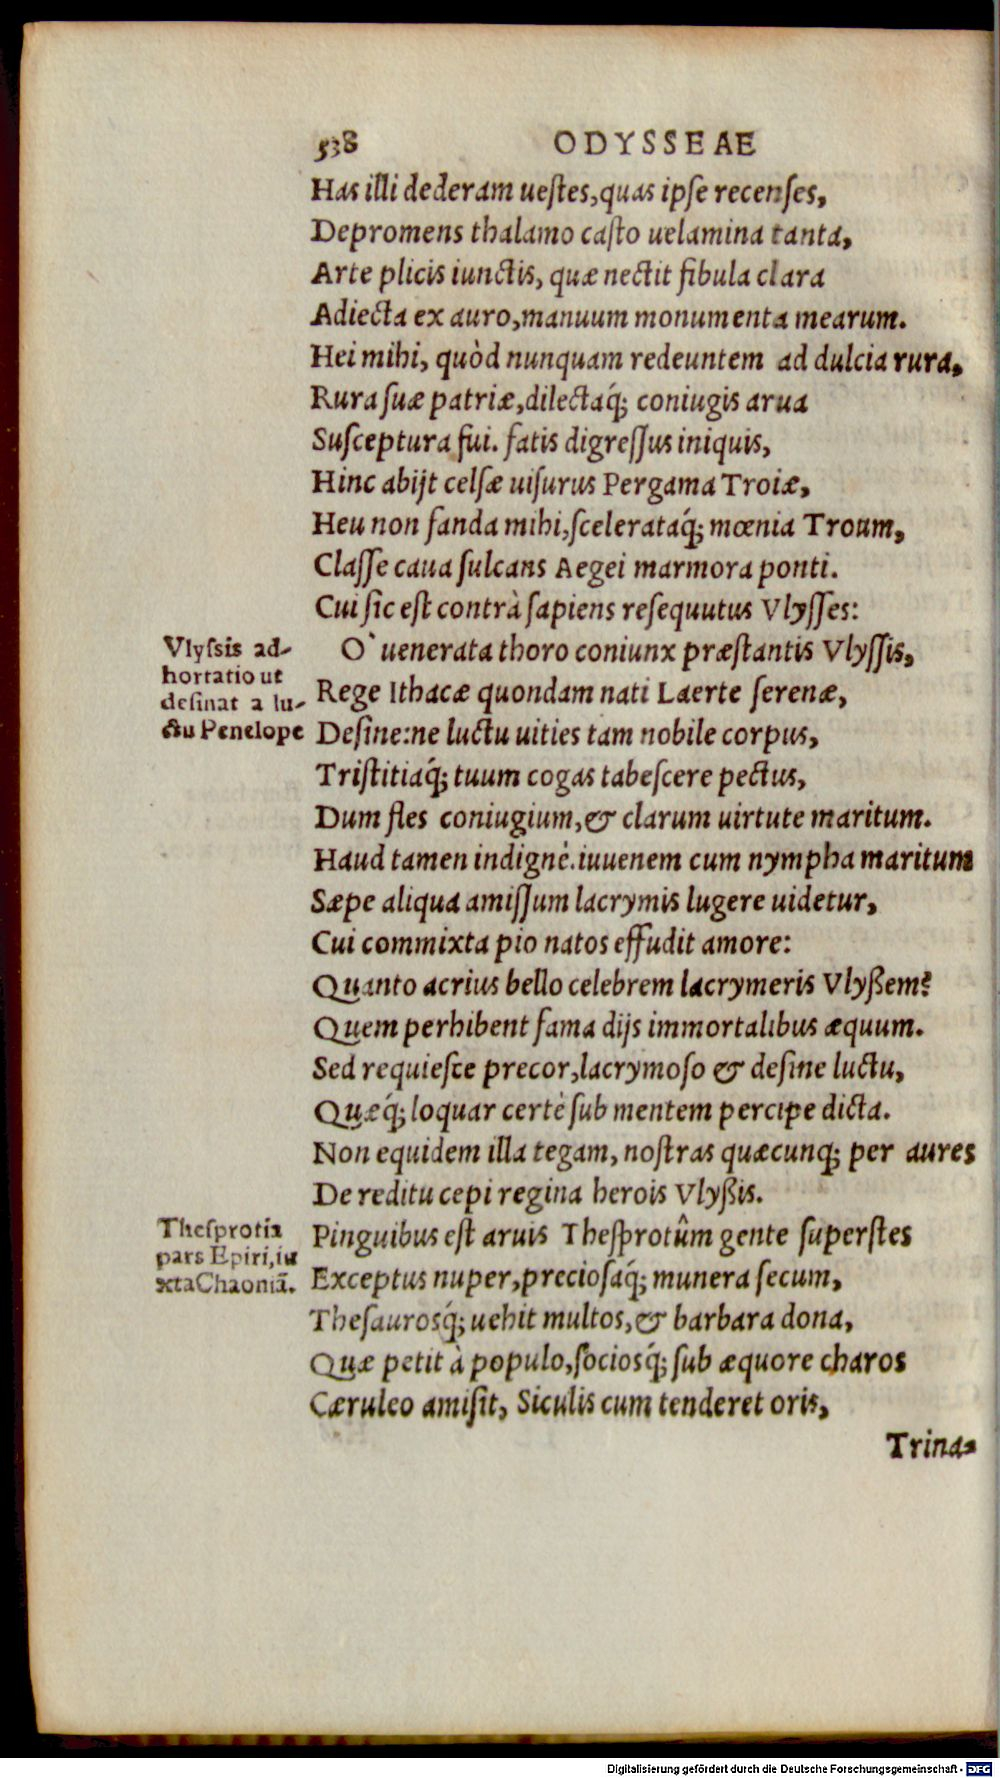 538 ODYSSEAE
Has illi dederam uestes, quas ipse recenses,
Depromens thalamo casto uelamina tanta,
Arte plicis iunctis, quæ nectit fibula clara
Adiecta ex auro, manuum monumenta mearum.
Hei mihi, quòd nunquam redeuntem ad dulcia rura,
Rura suæ patriæ, dilectaq́; coniugis arua
Susceptura fui. fatis digressus iniquis,
Hinc abijt celsæ uisurus Pergama Troiæ,
Heu non fanda mihi, scelerataq́; mœnia Troum,
Classe caua sulcans Aegei marmora ponti.
Cui sic est contrà sapiens resequutus Vlysses:
Vlyssis ad-
hortatio ut
desinat a lu-
ctu Penelope
O` uenerata thoro coniunx præstantis Vlyssis,
Rege Ithacæ quondam nati Laerte serenæ,
Desine: ne luctu uities tam nobile corpus,
Tristitiaq́; tuum cogas tabescere pectus,
Dum fles coniugium, & clarum uirtute maritum.
Haud tamen indignè. iuuenem cum nympha maritum
Sæpe aliqua amissum lacrymis lugere uidetur,
Cui commixta pio natos effudit amore:
Quanto acrius bello celebrem lacrymeris Vlyßem?
Quem perhibent fama dijs immortalibus æquum.
Sed requiesce precor, lacrymoso & desine luctu,
Quæq́; loquar certè sub mentem percipe dicta.
Non equidem illa tegam, nostras quæcunq; per aures
De reditu cepi regina herois Vlyßis.
Thesprotia
pars Epiri, iu
xta Chaoniã.
Pinguibus est aruis Thesprotûm gente superstes
Exceptus nuper, preciosaq́; munera secum,
Thesaurosq́; uehit multos, & barbara dona,
Quæ petit à populo, sociosq́; sub æquore charos
Cæruleo amisit, Siculis cum tenderet oris,
Trina-
Digitalisierung gefördert durch die Deutsche Forschungsgemeinschaft - DFG